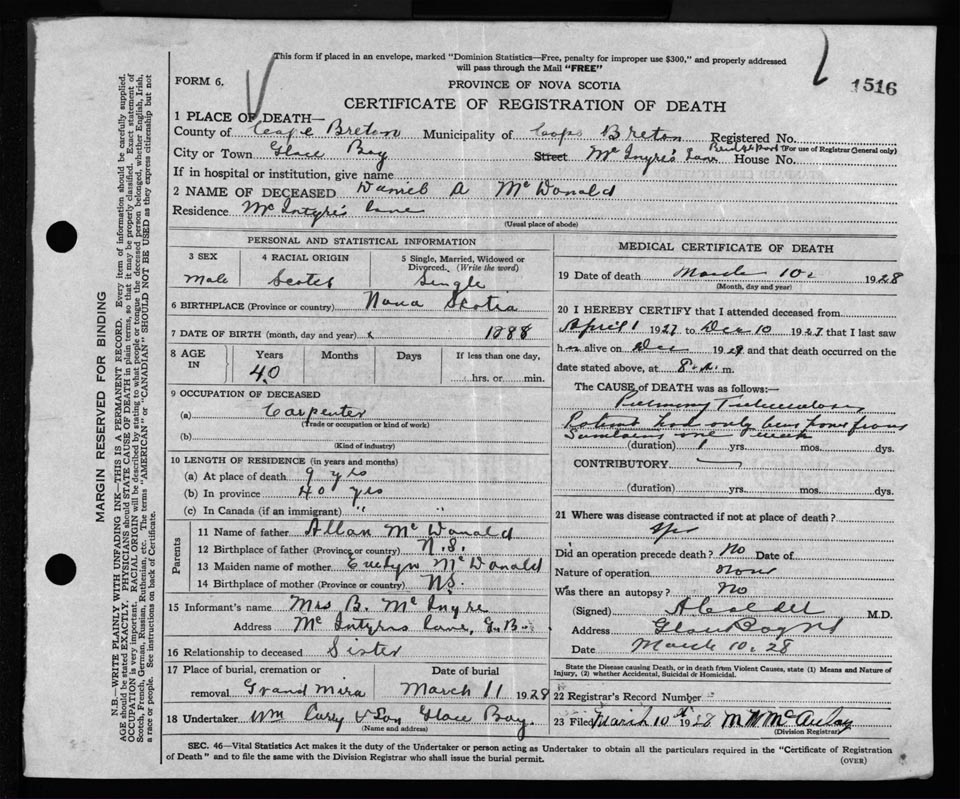 This form if placed in an envelope, marked "Dominion Statistics—Free, penalty for improper use $300," and properly addressed
will pass through the Mail "FREE"
FORM 6.
PROVINCE OF NOVA SCOTIA
1516
CERTIFICATE OF REGISTRATION OF DEATH
1 PLACE OF DEATH—
County of Cape Breton Municipality of Cape Breton Registered No.
(For use of Registrar General only)
City or Town Glace Bay Street Mc Intyre's Lane House No.
If in hospital or institution, give name
2 NAME OF DECEASED Daniel A McDonald
Residence McIntyre's Lane
(Usual place of abode)
PERSONAL AND STATISTICAL INFORMATION
3 SEX 4 RACIAL ORIGIN 5 Single, Married, Widowed or
Divorced. (Write the word)
Male Scotch Single
6 BIRTHPLACE (Province or country) Nova Scotia
7 DATE OF BIRTH (month, day and year) 1888
8 AGE IN Years Months Days If less than one day,
40 hrs. or min.
9 OCCUPATION OF DECEASED
(a) Carpenter
(Trade or occupation or kind of work)
(b)
(Kind of industry)
10 LENGTH OF RESIDENCE (in years and months)
(a) At place of death 9 yrs
(b) In province 40 yrs
(c) In Canada (if an immigrant) " "
Parents
11 Name of father Allan McDonald
12 Birthplace of father (Province or country) N.S.
13 Maiden name of mother McDonald
14 Birthplace of mother (Province or country) N.S.
15 Informant's name Mrs B. McIntyre
Address McIntyres Lane, G.B.
16 Relationship to deceased Sister
17 Place of burial, cremation or Date of burial
removal Grand Mira March 11 1928
18 Undertaker Wm Curry & Son Glace Bay.
(Name and address)
MEDICAL CERTIFICATE OF DEATH
19 Date of death March 10 1928
(Month, day and year)
20 I HEREBY CERTIFY that I attended deceased from
April 1 1927 to Dec 10 1927 that I last saw
h alive on Dec 19 and that death occurred on the
date stated above, at 8 a. m.
The CAUSE OF DEATH was as follows:—
Pulmonary Tuberculosis
Patient had only been home from
one week
(duration) 1 yrs. mos. dys.
CONTRIBUTORY
(duration) yrs. mos. dys.
21 Where was disease contracted if not at place of death?
Did an operation precede death? No Date of
Nature of operation None
Was there an autopsy? No
(Signed) M.D.
Address Glace Bay NS
Date March 10. 28
State the Disease causing Death, or in death from Violent Causes, state (1) Means and Nature of
Injury, (2) whether Accidental, Suicidal or Homicidal.
22 Registrar's Record Number
23 Filed March 10th 1928 M McAulay
(Division Registrar)
SEC. 46—Vital Statistics Act makes it the duty of the Undertaker or person acting as Undertaker to obtain all the particulars required in the "Certificate of Registration
of Death" and to file the same with the Division Registrar who shall issue the burial permit.
(OVER)
MARGIN RESERVED FOR BINDING
N.B.—WRITE PLAINLY WITH UNFADING INK—THIS IS A PERMANENT RECORD. Every item of information should be carefully supplied.
AGE should be stated EXACTLY. PHYSICIANS should STATE CAUSE OF DEATH in plain terms, so that it may be properly classified. Exact statement of
OCCUPATION is very important. RACIAL ORIGIN will be described by stating to what people or tongue the deceased person belonged, whether English, Irish,
Scotch, French, German, Russian, Ruthenian, etc. The terms "AMERICAN" or "CANADIAN" SHOULD NOT BE USED as they express citizenship but not
a race or people. See instructions on back of Certificate.